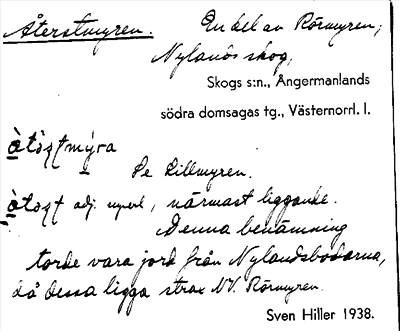 Återstmyren. En del av Rörmyren,
Nylands skog,
Skogs s:n., Ångermanlands
södra domsagas tg., Västernorrl. l.
Se Lillmyren.
adj. superl., närmast liggande.
Denna benämning
torde vara jord från Nylandsbodarna,
då dessa ligga strax NV. Rörmyren.
Sven Hiller 1938.